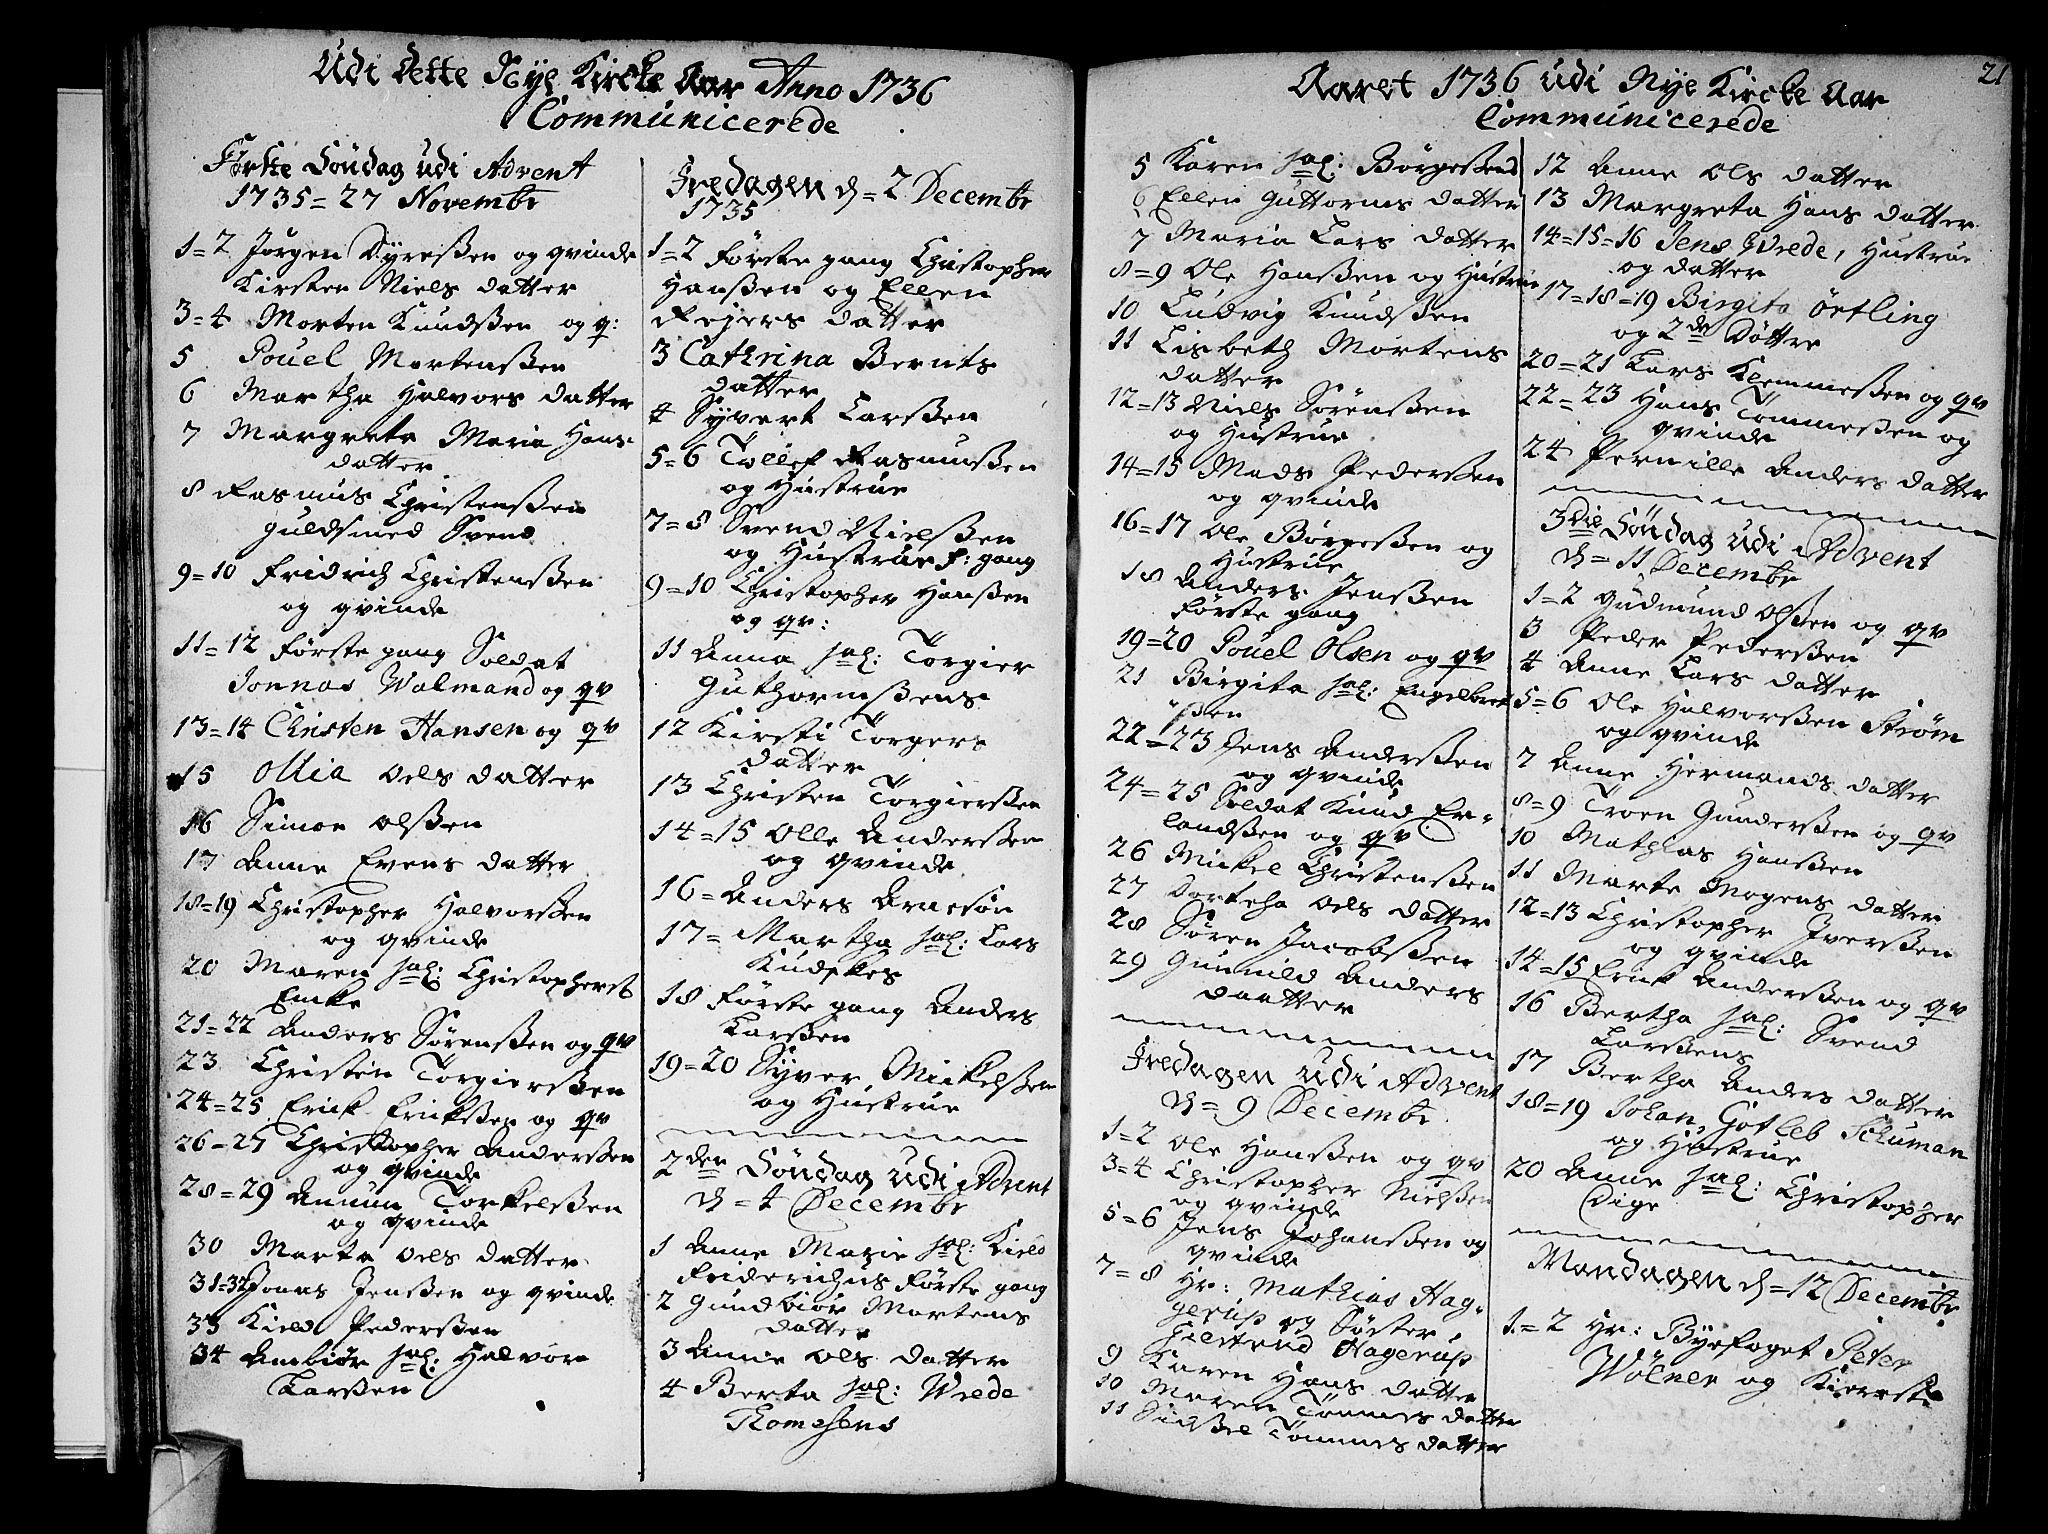 Udi dette Nye Kircke Aar Anno 1736
Communicerede
Förste Söndag udi Advent
1735 = 27 Novembr
1=2 Jørgen Dyreßen og qvinde
Kirsten Niels datter
3=4 Morten Knudßen og q:
5 Pouel Mortenßen
6 Martha Halvors datter
7 Margreta Maria Hans-
datter
8 Rasmus Christenßen
guldsmed Svend
9=10 Fridrich Christenßen
og qvinde
11=12 første gang Soldat
Jonnas Walmand og qv
13=14 Christen Hansen og qv
15 Ollia Oels datter
16 Simon Olßen
17 Anne Evens datter
18=19 Christopher Halvorßen
og qvinde
20 Maren sal: Christophers
Encke
21=22 Anders Sørenßen og qv
23 Christen Torgierßen
24=25 Erick Erickßen og qv
26=27 Christopher Anderßen
og qvinde
28=29 Amun Torkelßen
og qvinde
30 Marta Oels datter
31=32 Jonas Jenßen og qvinde
33 Kield Pederßen
34 Anbiør sal: Halvor
Larßen
Fredagen d = 2 Decembr
1735
1=2 første gang Christopher
Hanßen og Ellen
Rejers datter
3 Cathrina Bernts
datter
4 Syvert Larßen
5=6 Tollef Rasmusßen
og Hustrue
7=8 Svend Nielßen
og Hustrue f: gang
9=10 Christopher Hanßen
og qv:
11 Anna sal: Torgier
Guthormßens
12 Kirsti Torgers
datter
13 Christen Torgierßen
14=15 Olle Anderßen
og qvinde
16= Anders Arnesøn
17= Martha sal: Lars
18 første gang Anders
Larßen
19=20 Syver Mickelßen
og Hustrue
2den Söndag udi Advent
d = 4 Decembr
1 Anne Marie sal: Kield
Friderichs første gang
2 Gundbiør Mortens
datter
3 Anne Ols datter
4 Berta sal: Wrede
Thomesens
Aaret 1736 udi Nye Kircke Aar
Communicerede
21
5 Karen sal: Børgeßens
6 Ellen Guttorms datter
7 Maria Lars datter
8=9 Ole Hanßen og Hustrue
10 Ludvig Knudßen
11 Lisbeth Mortens
datter
12=13 Niels Sørenßen
og Hustrue
14=15 Mads Pederßen
og qvinde
16=17 Ole Børgeßen og
Hustrue
18 Anders Jenßen
første gang
19=20 Pouel Olsen og qv
21 Birgita sal: Engelbret
ßen
22=23 Jens Anderßen
og qvinde
24=25 Soldat Knud Er-
landßen og qv
26 Mickel Christenßen
27 Dorteha Oels datter
28 Søren Jacobßen
29 Gunnild Anders
daatter
Fredagen udi Advent
d = 9 Decembr
1=2 Ole Hanßen og qv
3=4 Christopher Nielßen
og qvinde
5=6 Jens Johanßen og
qvinde
7=8 Hr: Mathias Hag-
gerup og Søster,
Giertrud Hagerup
9 Karen Hans datter
10 Maren Tønnes datter
11 Sidßel Tommes datter
12 Anne Ols datter
13 Margreta Hans datter
14=15=16 Jens Wrede, Hustrue
og datter
17=18=19 Birgita Örtling
og 2de Døttre
20=21 Lars Klemmeßen og qv
22=23 Hans Tommeßen og
qvinde
24 Pernille Anders datter
3die Söndag udi Advent
d = 11 Decembr
1=2 Gudmund Olßen og qv
3 Peder Pederßen
4 Anne Lars datter
5=6 Ole Halvorßen Strøm
og qvinde
7 Anne Hermands datter
8=9 Troen Gunderßen og qv
10 Mathias Hanßen
11 Marte Mogens datter
12=13 Christopher Iverßen
og qvinde
14=15 Erick Anderßen og qv
16 Bertha sal: Svend
Larßens
17 Bertha Anders datter
18=19 Johan Gotleb Schuman
og Hustrue
20 Anne sal: Christopher
Dige
Mandagen d = 12 Decembr
1=2 Hr: Byefoget Peter
Wölner og Kierrste